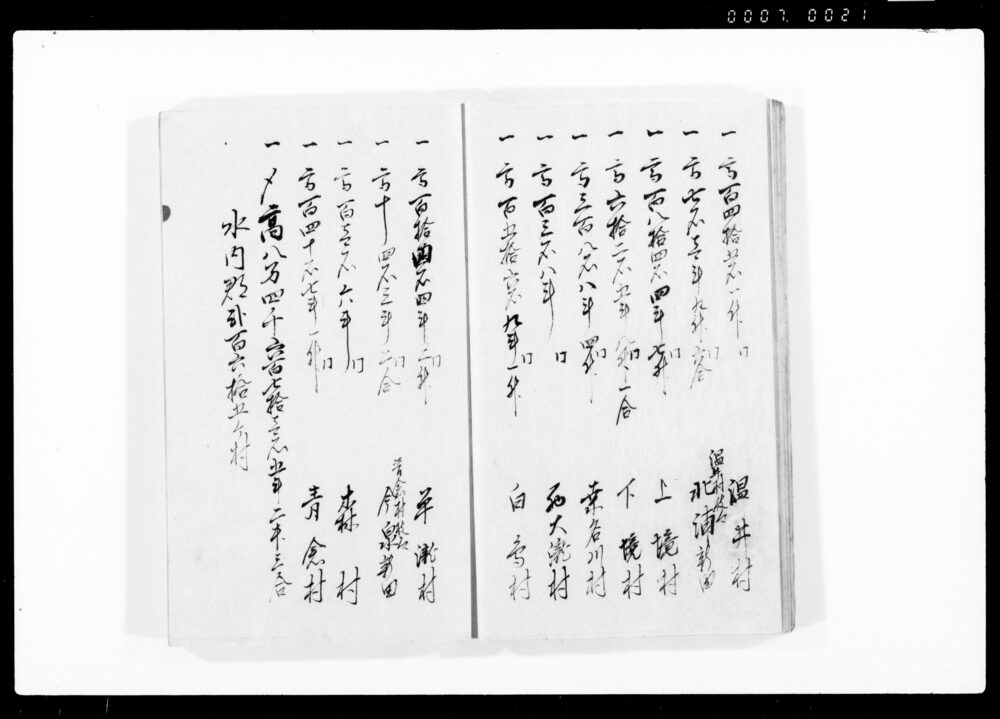 0007. 0021
一 高百四拾五石一升 温井村
一 高七石壱斗九升六合 温井村枝 北浦新田
一 高百八拾四石四斗七升 上境村
一 高六拾二石五斗九升一合 下境村
一 高三百八石八斗四升 桑名川村
一 高百三石八斗 西大滝村
一 高百五拾六石九斗一升 白鳥村
一 高百拾四石四斗二升 平滝村
一 高十四石三斗二合 青倉村枝 今泉新田
一 高百壱石六斗 森村
一 高百四十石七斗一升 青倉村
一 〆高八万四千六百七拾壱石五斗二升三合
水内郡弐百六拾五ケ村